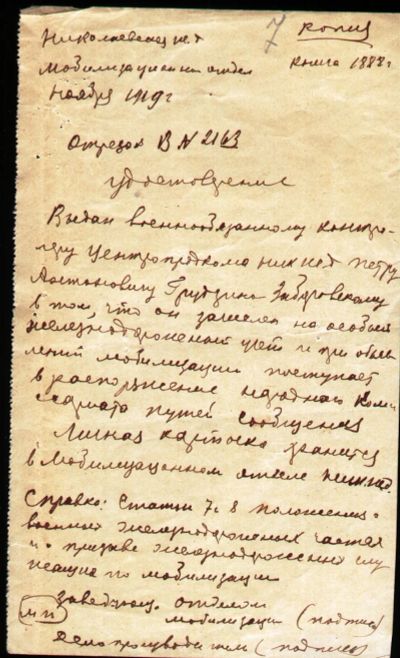 7 копия
Николаевская жел
мобилизационный отдел книга 1888 г
ноября 1919 г
отрезок В N 2163
удостоверение
Выдан военнообязанному контро-
леру Центропродкома Ник жел Петру
Антоновичу
в том, что он зачислен на особый
железнодорожный учет и при объяв
лении мобилизации поступает
в распоряжение народного коми
сариата путей сообщения
Личная карточка хранится
в мобилизационном отделе Ник жел
Справка: Статьи 7 и 8 положения о
военных железнодорожных частях
и о призыве железнодорожных слу
жащих по мобилизации
заведующ. отделом
мп мобилизации (подпись)
Делопроизводителем (подпись)